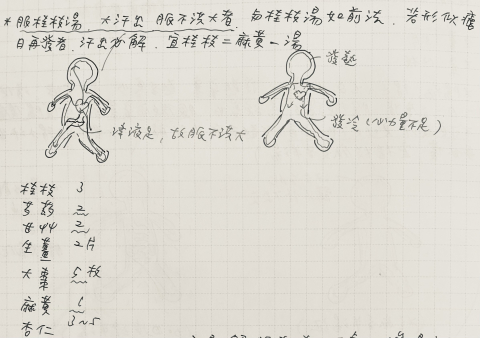 * 服桂枝湯，大汗出 脈不洪大者，與桂枝湯如前法，若形似瘧
日再發者，汗出必解，宜桂枝二麻黃一湯
發熱
津液足，故脈不洪大
發冷（心力量不足）
桂枝 3
芍藥 2
甘艸 2
生薑 2片
大棗 5枚
麻黃 1
杏仁 3~5